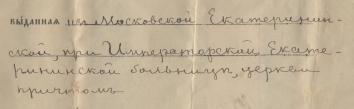 выданная изъ Московской Екатеринин-
ской, при Императорской Екате-
рининской больницѣ, церкви
причтомъ